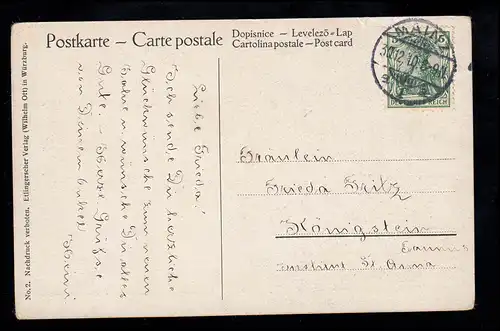 Postkarte – Carte postale
Dopisnice – Levelező-Lap
Cartolina postale – Post card
No. 2. Nachdruck verboten. Etlingerscher Verlag (Wilhelm Ott) in Würzburg.
MAINZ
30.12.10
DEUTSCHES REICH
Liebe Frieda!
Ich sende Dir herzliche
Glückwünsche zum neuen
Jahre u. wünsche Dir alles
Gute. – Herzl. Grüsse
von Deinem Onkel
Heini
Fräulein
Frieda Fritz
Königstein
Taunus
Institut St. Anna